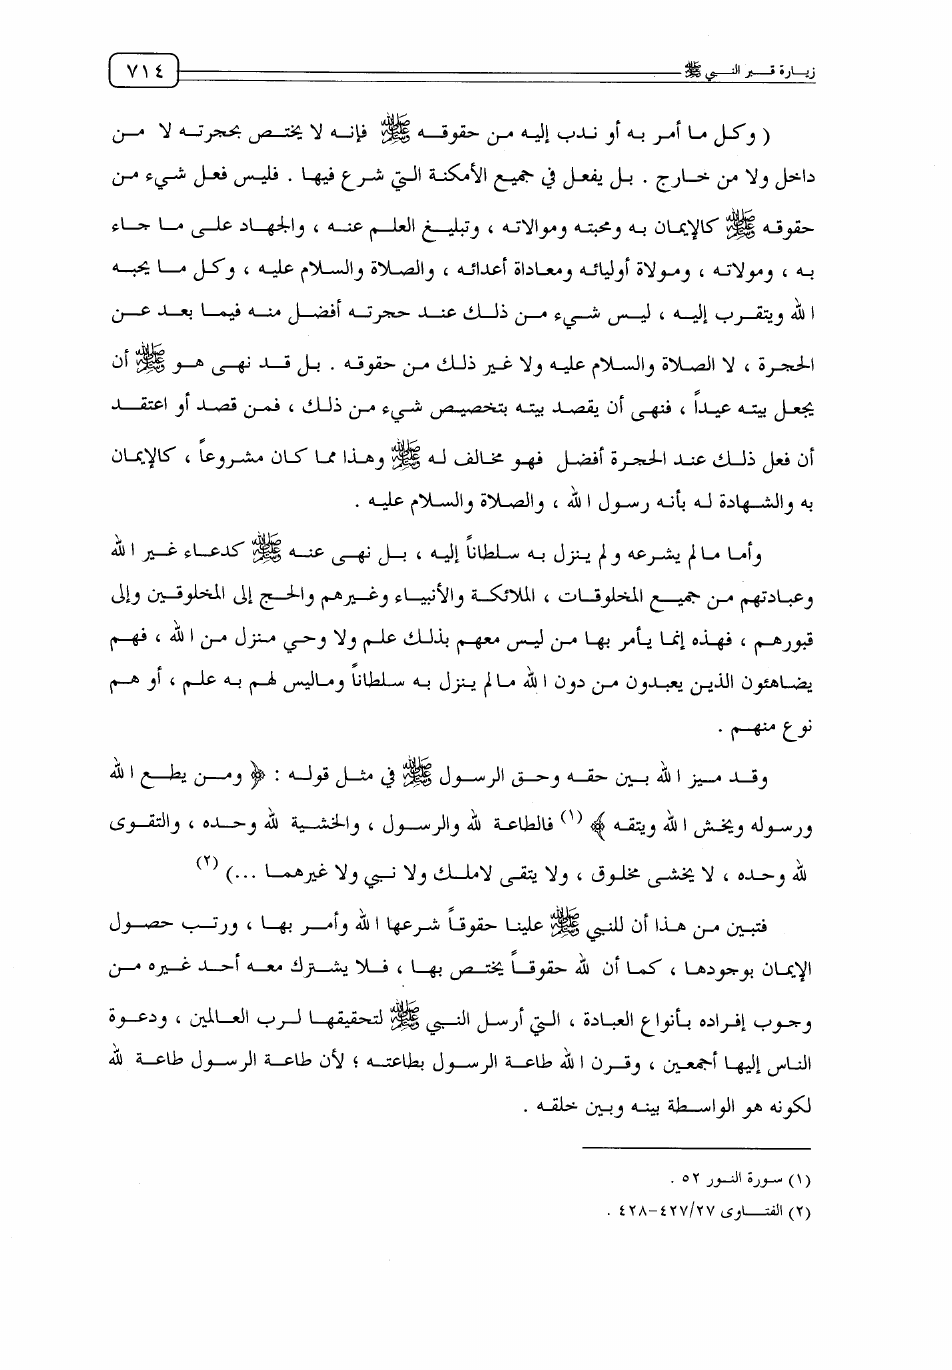 زيارة قبر النبي ﷺ
٧١٤
( وكل ما أمر به أو ندب إليه من حقوقه ﷺ فإنه لا يختص بحجرته لا من
داخل ولا من خارج . بل يفعل في جميع الأمكنة التي شرع فيها . فليس فعل شيء من
حقوقه ﷺ كالإيمان به ومحبته وموالاته ، وتبليغ العلم عنه ، والجهاد على ما جاء
به ، ومولاته ، ومولاة أوليائه ومعاداة أعدائه ، والصلاة والسلام عليه ، وكل ما يحبه
الله ويتقرب إليه ، ليس شيء من ذلك عند حجرته أفضل منه فيما بعد عن
الحجرة ، لا الصلاة والسلام عليه ولا غير ذلك من حقوقه . بل قد نهى هو ﷺ أن
يجعل بيته عيداً ، فنهى أن يقصد بيته بتخصيص شيء من ذلك ، فمن قصد أو اعتقد
أن فعل ذلك عند الحجرة أفضل فهو مخالف له ﷺ وهذا مما كان مشروعاً ، كالإيمان
به والشهادة له بأنه رسول الله ، والصلاة والسلام عليه .
وأما ما لم يشرعه ولم ينزل به سلطاناً إليه ، بل نهى عنه ﷺ كدعاء غير الله
وعبادتهم من جميع المخلوقات ، الملائكة والأنبياء وغيرهم والحج إلى المخلوقين وإلى
قبورهم ، فهذه إنما يأمر بها من ليس معهم بذلك علم ولا وحي منزل من الله ، فهم
يضاهئون الذين يعبدون من دون الله ما لم ينزل به سلطاناً وماليس لهم به علم ، أو هم
نوع منهم .
وقد ميز الله بين حقه وحق الرسول ﷺ في مثل قوله : ﴿ ومن يطع الله
ورسوله ويخش الله ويتقه ﴾ (١) فالطاعة لله والرسول ، والخشية لله وحده ، والتقوى
لله وحده ، لا يخشى مخلوق ، ولا يتقى لاملك ولا نبي ولا غيرهما ...) (٢)
فتبين من هذا أن للنبي ﷺ علينا حقوقاً شرعها الله وأمر بها ، ورتب حصول
الإيمان بوجودها ، كما أن لله حقوقاً يختص بها ، فلا يشترك معه أحد غيره من
وجوب إفراده بأنواع العبادة ، التي أرسل النبي ﷺ لتحقيقها لرب العالمين ، ودعوة
الناس إليها أجمعين ، وقرن الله طاعة الرسول بطاعته ؛ لأن طاعة الرسول طاعة لله
لكونه هو الواسطة بينه وبين خلقه .
(١) سورة النور ٥٢ .
(٢) الفتاوى ٤٢٧/٢٧-٤٢٨ .